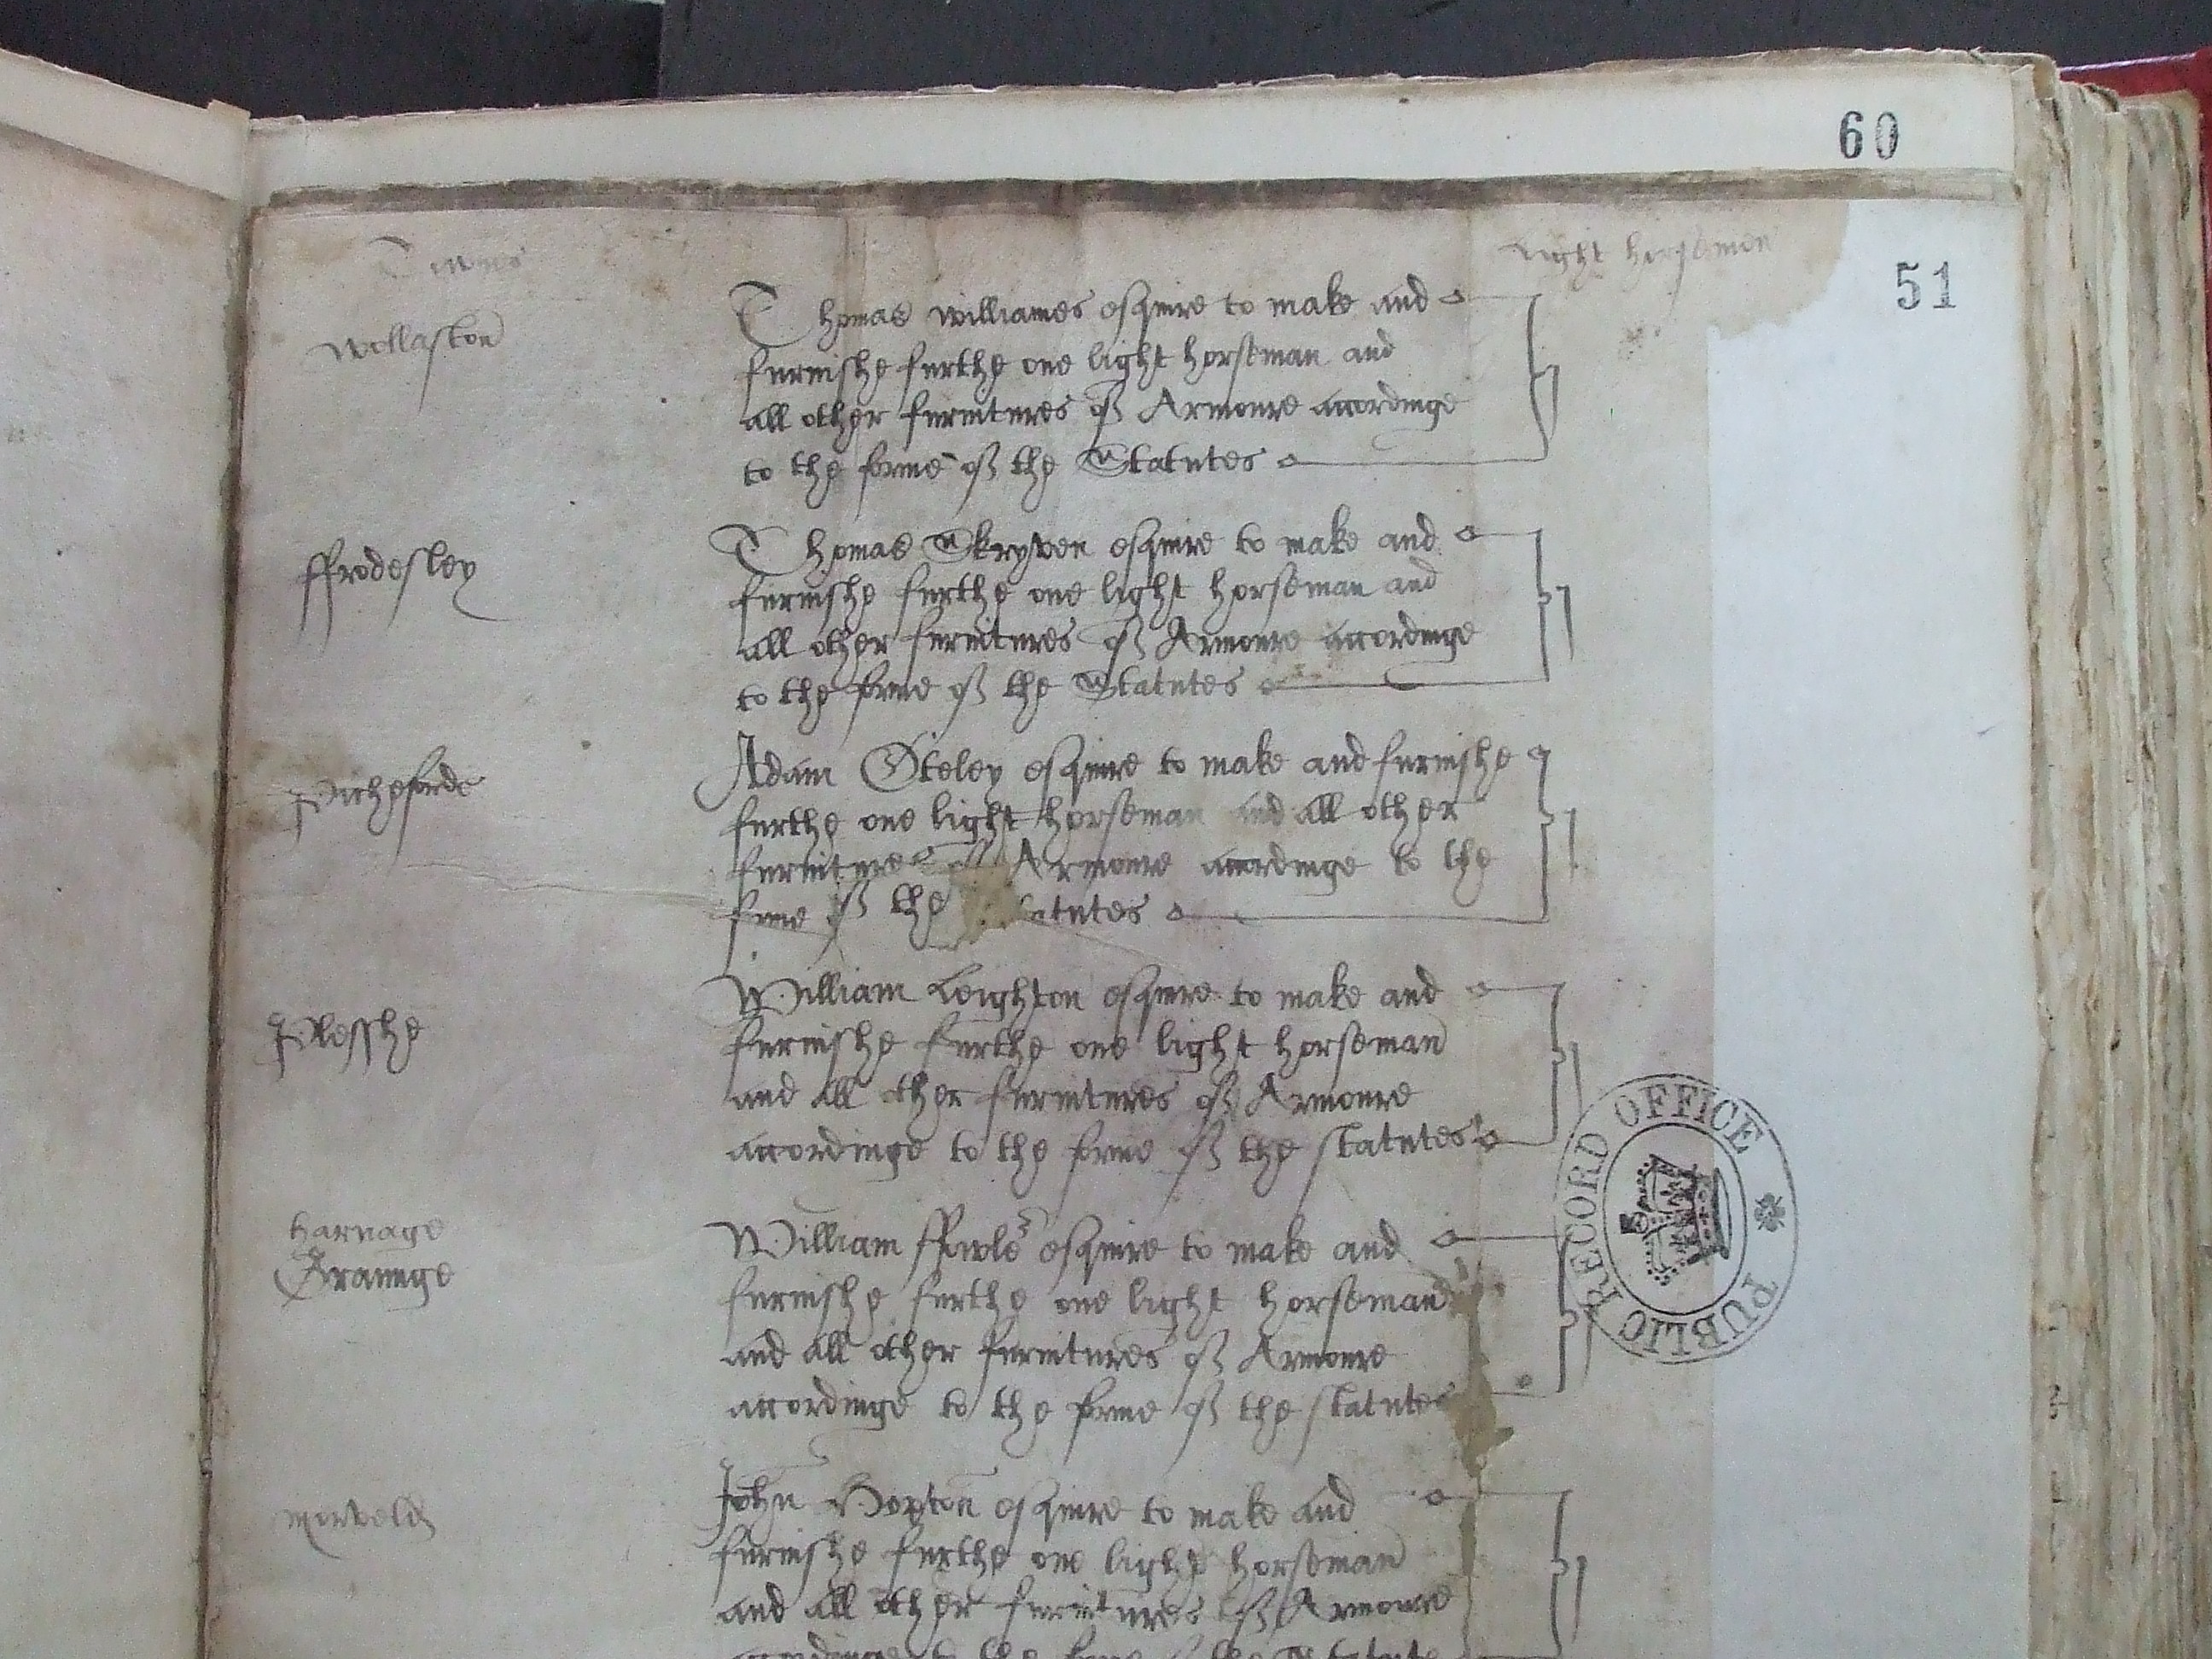 60
51
Townes
Light horsemen
Wollaston
Thomas Williames esquire to make and
furnishe furthe one light horseman and
all other furnitures of Armoure accordinge
to the forme of the Statutes
j
ffrodesley
Thomas Skryven esquire to make and
furnishe furthe one light horseman and
all other furnitures of Armoure accordinge
to the forme of the Statutes
j
Picheforde
Adam Oteley esquire to make and furnishe
furthe one light horseman and all other
furnitures of Armoure accordinge to the
forme of the Statutes
j
Plesshe
William Leighton esquire to make and
furnishe furthe one light horseman
and all other furnitures of Armoure
accordinge to the forme of the statutes
j
Harnage
Graunge
William ffowler esquire to make and
furnishe furthe one light horseman
and all other furnitures of Armoure
accordinge to the forme of the statutes
j
Morveld
John Hopton esquire to make and
furnishe furthe one light horseman
and all other furnitures of Armoure
accordinge to the forme of the Statute
j
PUBLIC RECORD OFFICE